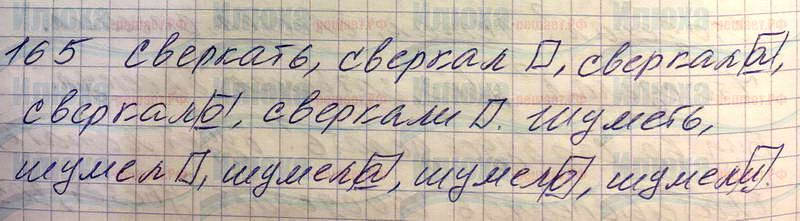 165 сверкать, сверкал □, сверкала,
сверкало, сверкали □. Шуметь,
шумел □, шумела, шумело, шумели.